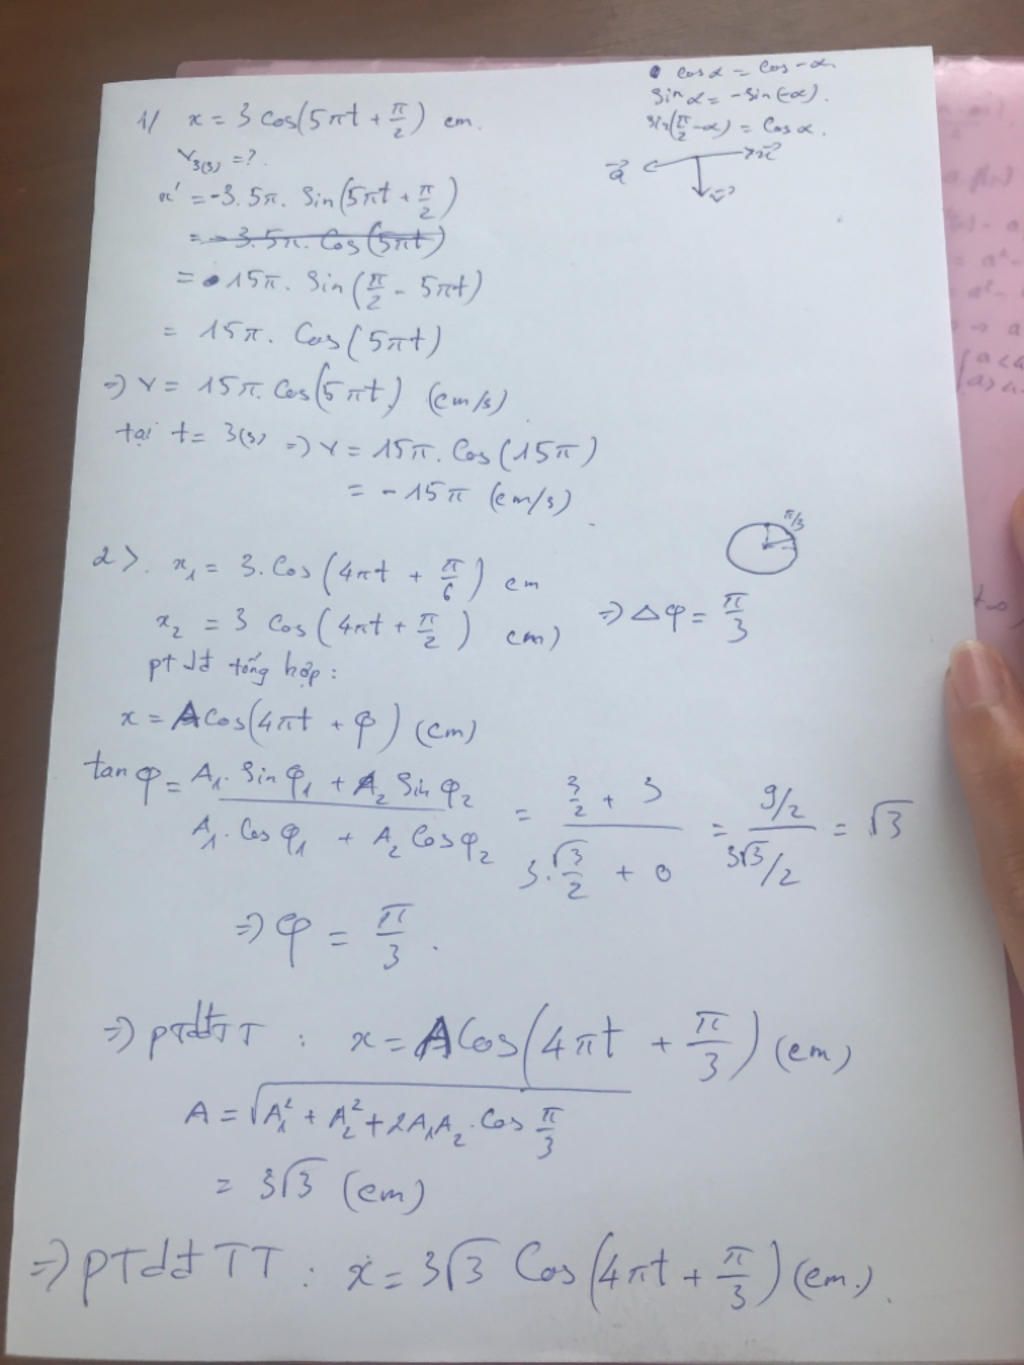 cosα = cos -α.
sinα = -sin(-α).
sin(π/2 - α) = cosα.
1/ x = 3 cos(5πt + π/2) cm.
v₃₍ₛ₎ = ?
x' = -3.5π. sin(5πt + π/2)
= -3.5π. cos(5πt)
= 15π. sin(π/2 - 5πt)
= 15π. cos(5πt)
=> v = 15π. cos(5πt) (cm/s)
tại t = 3(s) => v = 15π. cos(15π)
= -15π (cm/s)
π/3
2>. x₁ = 3.cos(4πt + π/6) cm
x₂ = 3 cos(4πt + π/2) cm) => Δφ = π/3
pt dđ tổng hợp:
x = Acos(4πt + φ) (cm)
tanφ = (A₁. sinφ₁ + A₂ sinφ₂)/(A₁. cosφ₁ + A₂ cosφ₂) = (3/2 + 3)/(3.√3/2 + 0) = (9/2)/(3√3/2) = √3
=> φ = π/3.
=> pTdđTT : x = Acos(4πt + π/3) (cm)
A = √(A₁² + A₂² + 2A₁A₂.cos π/3)
= 3√3 (cm)
=> pTdđTT : x = 3√3 cos(4πt + π/3) (cm.).